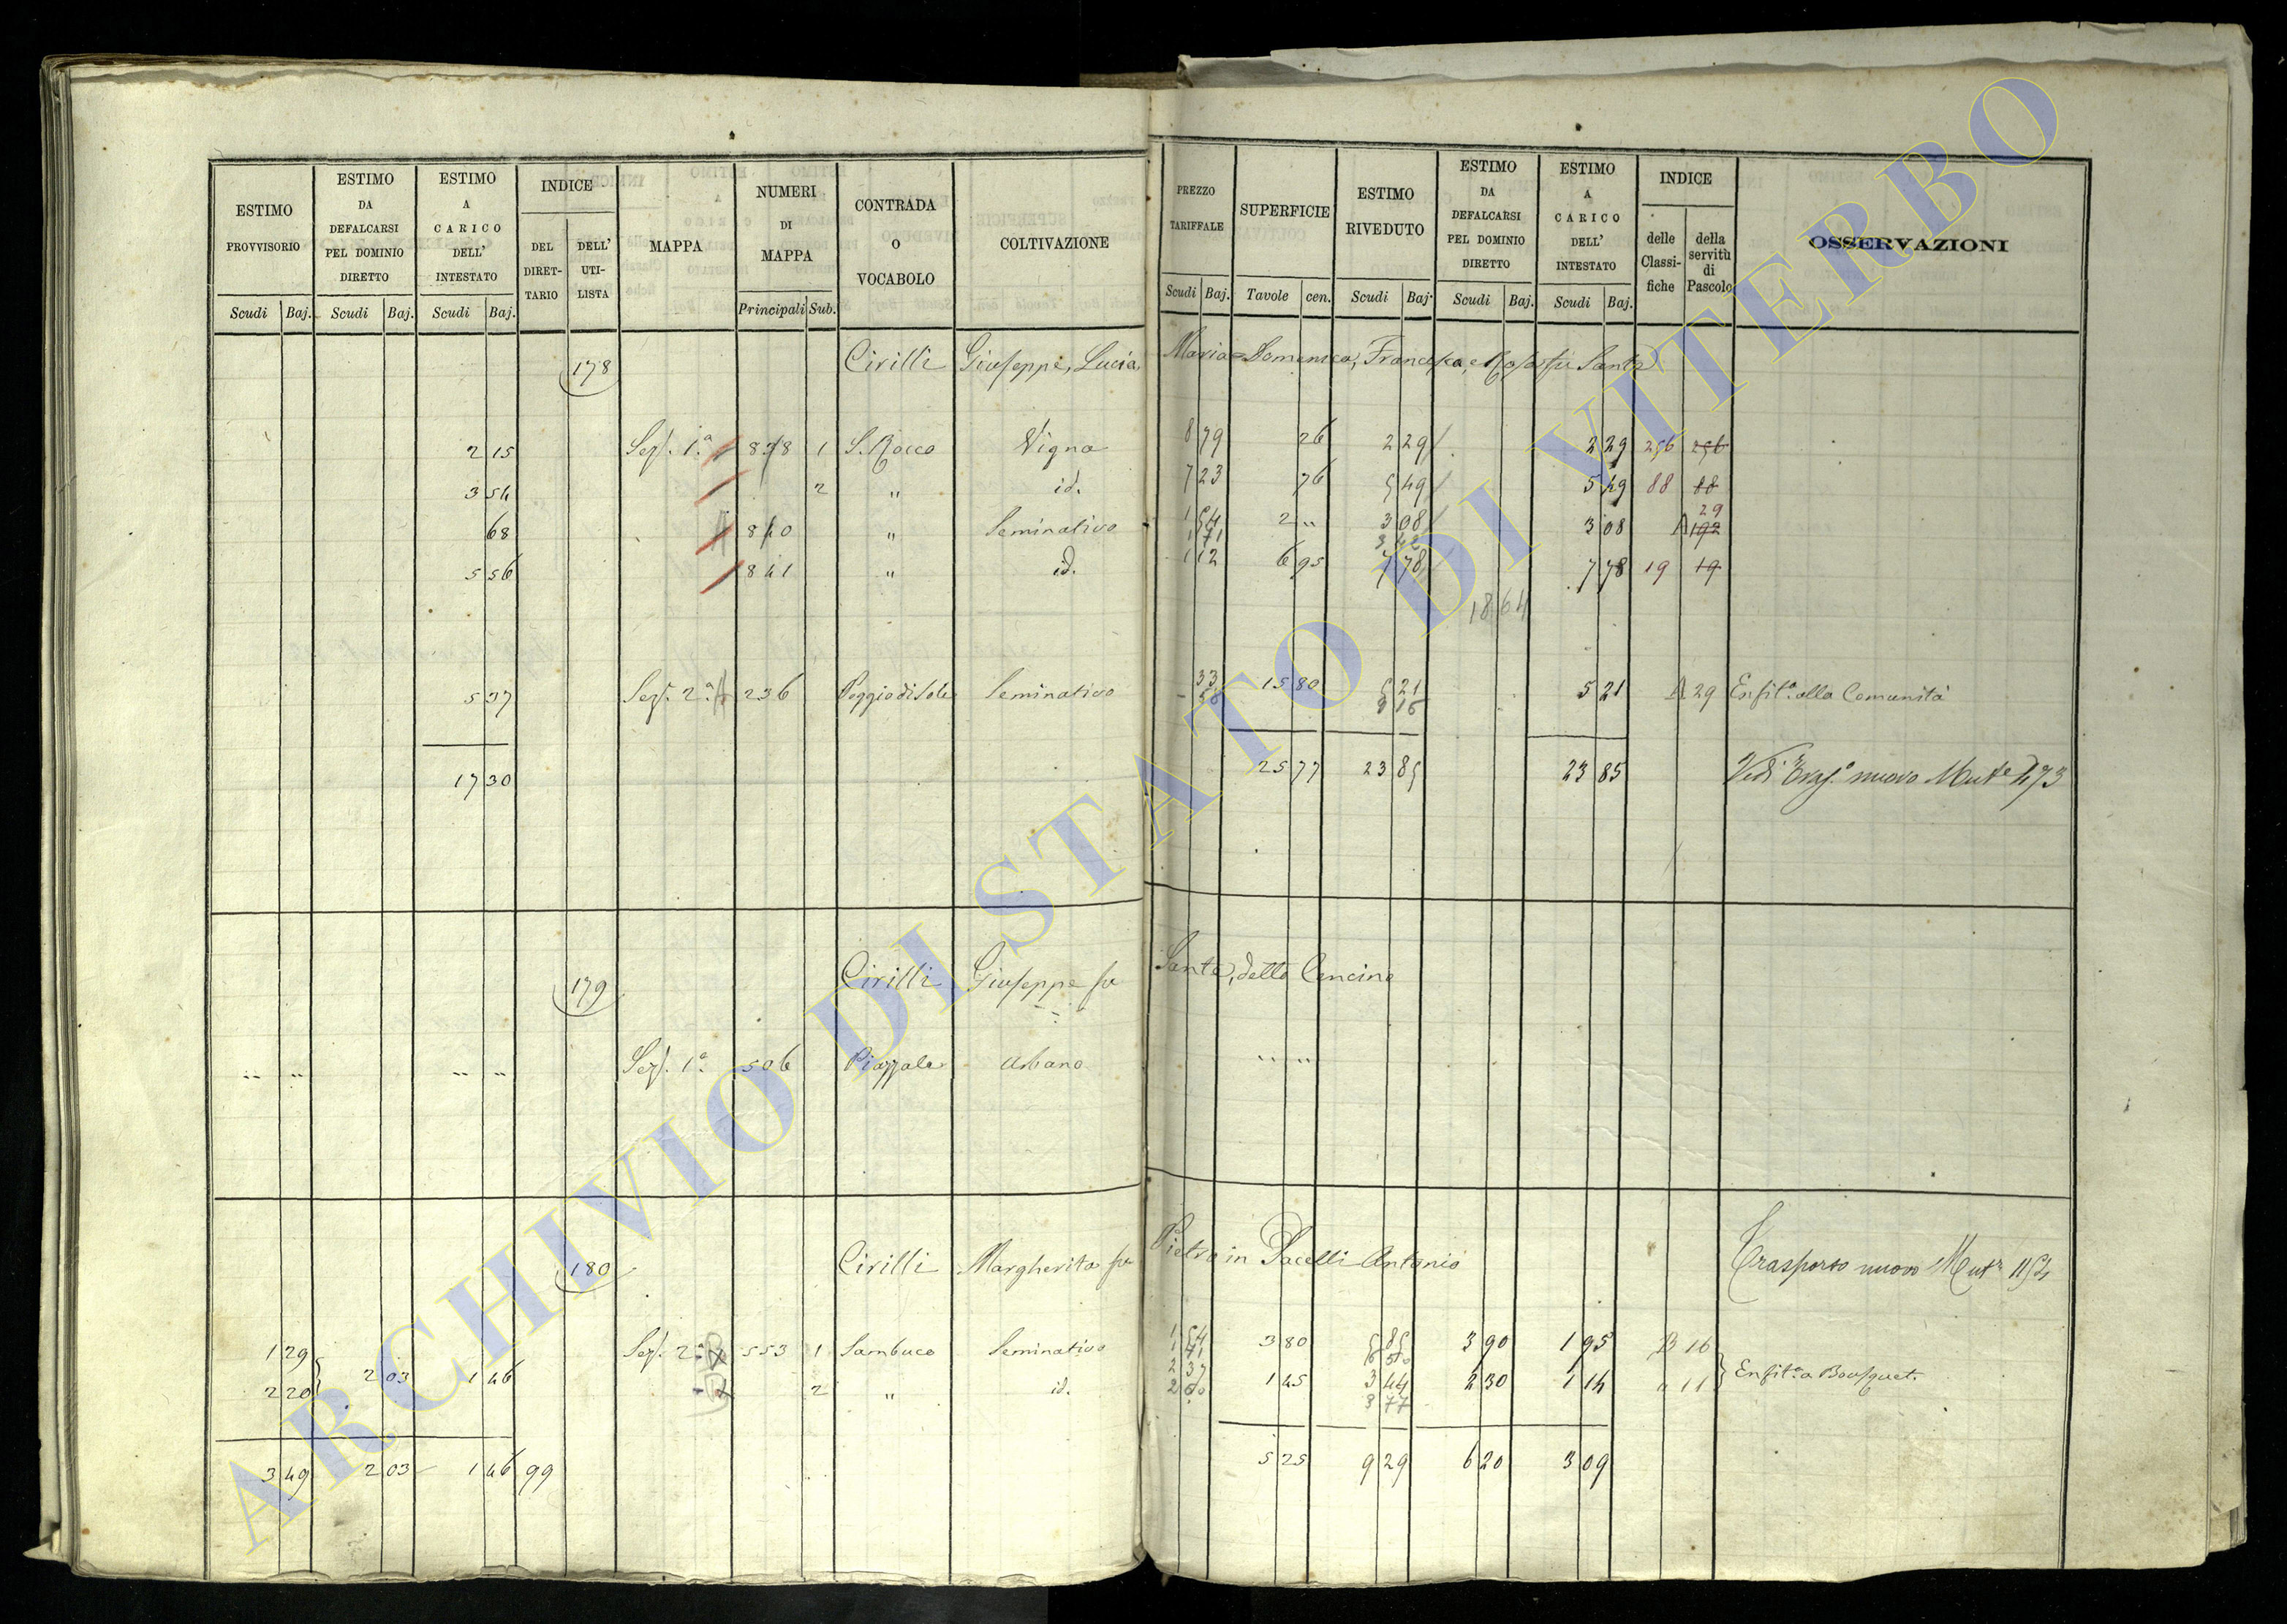 ESTIMO PROVVISORIO | ESTIMO DA DEFALCARSI PEL DOMINIO DIRETTO | ESTIMO A CARICO DELL' INTESTATO | INDICE | MAPPA | NUMERI DI MAPPA | CONTRADA O VOCABOLO | COLTIVAZIONE | PREZZO TARIFFALE | SUPERFICIE | ESTIMO RIVEDUTO | ESTIMO DA DEFALCARSI PEL DOMINIO DIRETTO | ESTIMO A CARICO DELL' INTESTATO | INDICE | OSSERVAZIONI
DEL DIRET-TARIO | DELL' UTI-LISTA | delle Classi-fiche | della servitù di Pascolo
Scudi Baj. | Scudi Baj. | Scudi Baj. | Principali Sub. | Scudi Baj. | Tavole cen. | Scudi Baj. | Scudi Baj. | Scudi Baj.
178 Cirilli Giuseppe, Lucia, Maria Domenica, Francesca, e Rosa fu Sante
2 15 Sez. 1ª 838 1 S. Rocco Vigna 8 79 26 2 29 2 29 256 256
3 54 2 " id. 7 23 76 5 49 5 49 88 88
29
68 840 " Seminativo 1 54 2 " 3 08 3 08 A 192
1 71 3 42
5 56 841 " id. 1 12 6 95 7 78 7 78 19 19
18 64
5 37 Sez. 2ª 236 Poggio di Sole Seminativo 33 15 80 5 21 5 21 A 29 Enfitª alla Comunità
58 9 16
17 30 25 77 23 85 23 85 Vedi Trasº nuovo Mutª 473
179 Cirilli Giuseppe fu Sante, detto Cencino
" " " " Sez. 1ª 506 Piazzale Urbano " "
180 Cirilli Margherita fu Pietro in Pacelli Antonio Trasporto nuovo Mutª
1 29 Sez. 2ª 553 1 Sambuco Seminativo 1 54 3 80 5 85 3 90 1 95 B 16
2 03 1 46 1 71 6 50 Enfitª a Bousquet
2 20 2 " id. 2 37 1 45 3 44 2 30 1 14 " 11
2 60 3 77
3 49 2 03 1 46 99 5 25 9 29 6 20 3 09
ARCHIVIO DI STATO DI VITERBO